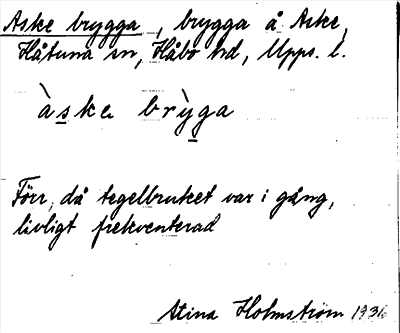 Aske brygga, brygga å Aske,
Håtuna sn, Håbo hd, Upps. l.
àske brỳga
Förr, då tegelbruket var i gång,
livligt frekventerad
Stina Holmström 1936